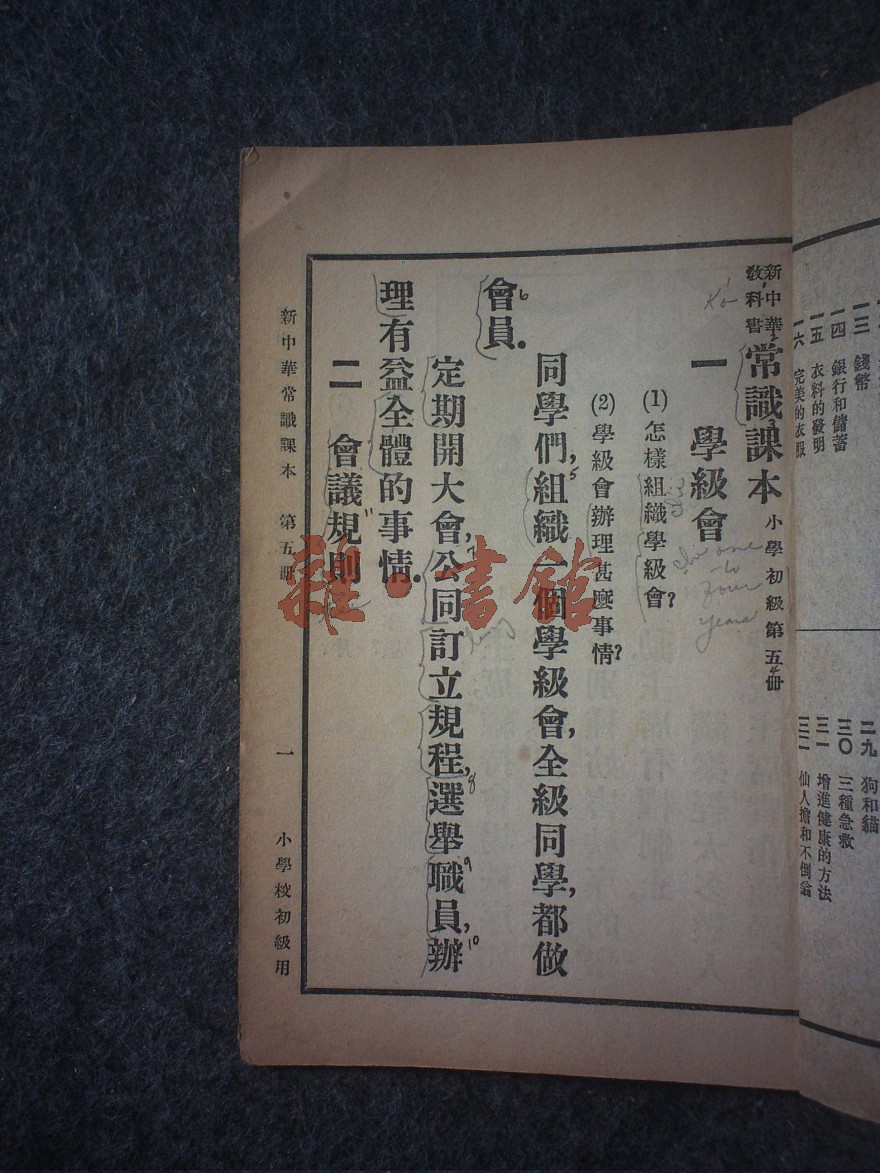 新中華
教科書
常識課本 小學初級第五冊
一 學級會
(1) 怎樣組織學級會?
(2) 學級會辦理甚麼事情?
同學們,組織一個學級會,全級同學,都做
會員.
定期開大會,公同訂立規程,選舉職員,辦
理有益全體的事情.
二 會議規則
新中華常識課本 第五冊 一 小學校初級用
一三 錢幣
一四 銀行和儲蓄
一五 衣料的發明
一六 完美的衣服
二九 狗和貓
三〇 三種急救
三一 增進健康的方法
三二 仙人擔和不倒翁
雜·書館
one
to
four
years
5
6
8
9
10
11